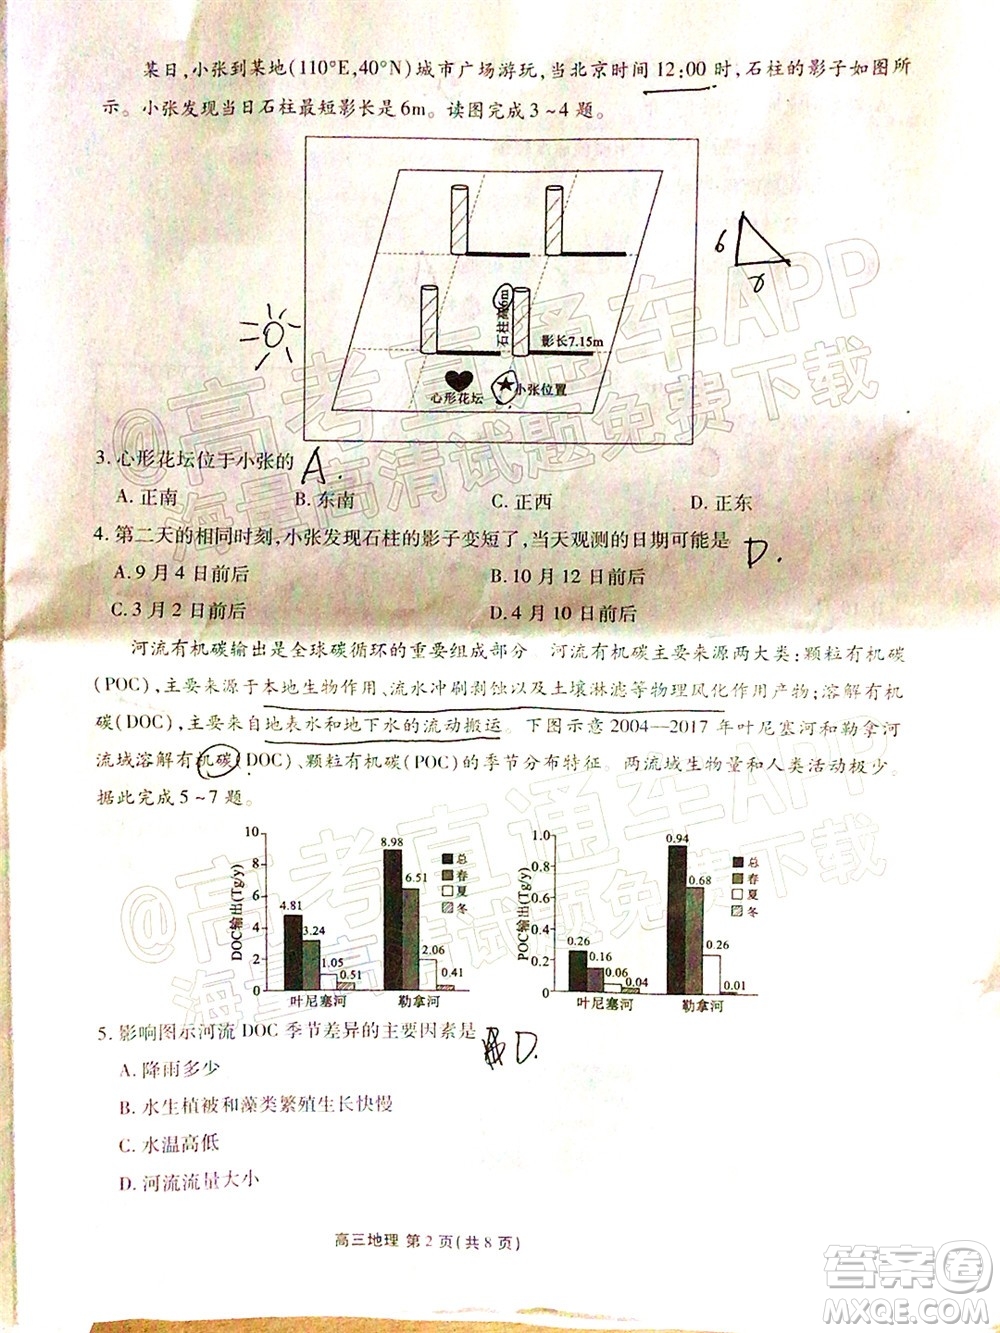 某日,小张到某地(110°E,40°N)城市广场游玩,当北京时间12:00时,石柱的影子如图所
示。小张发现当日石柱最短影长是6m。读图完成3~4题。
石柱高6m
影长7.15m
心形花坛
小张位置
6
3. 心形花坛位于小张的 A.
A. 正南 B. 东南 C. 正西 D. 正东
4. 第二天的相同时刻,小张发现石柱的影子变短了,当天观测的日期可能是 D.
A. 9月4日前后 B. 10月12日前后
C. 3月2日前后 D. 4月10日前后
河流有机碳输出是全球碳循环的重要组成部分。河流有机碳主要来源两大类:颗粒有机碳
(POC),主要来源于本地生物作用、流水冲刷剥蚀以及土壤淋滤等物理风化作用产物;溶解有机
碳(DOC),主要来自地表水和地下水的流动搬运。下图示意2004—2017年叶尼塞河和勒拿河
流域溶解有机碳(DOC)、颗粒有机碳(POC)的季节分布特征。两流域生物量和人类活动极少。
据此完成5~7题。
DOC输出(Tg/y)
10
8
6
4
2
0
4.81 3.24 1.05 0.51
8.98 6.51 2.06 0.41
总
春
夏
冬
叶尼塞河 勒拿河
POC输出(Tg/y)
1.0
0.8
0.6
0.4
0.2
0.0
0.26 0.16 0.06 0.04
0.94 0.68 0.26 0.01
总
春
夏
冬
叶尼塞河 勒拿河
5. 影响图示河流DOC季节差异的主要因素是 D.
A. 降雨多少
B. 水生植被和藻类繁殖生长快慢
C. 水温高低
D. 河流流量大小
高三地理 第2页(共8页)
@高考直通车APP
海量高清试题免费下载
@高考直通车APP
海量高清试题免费下载
答案卷
MXQE.COM